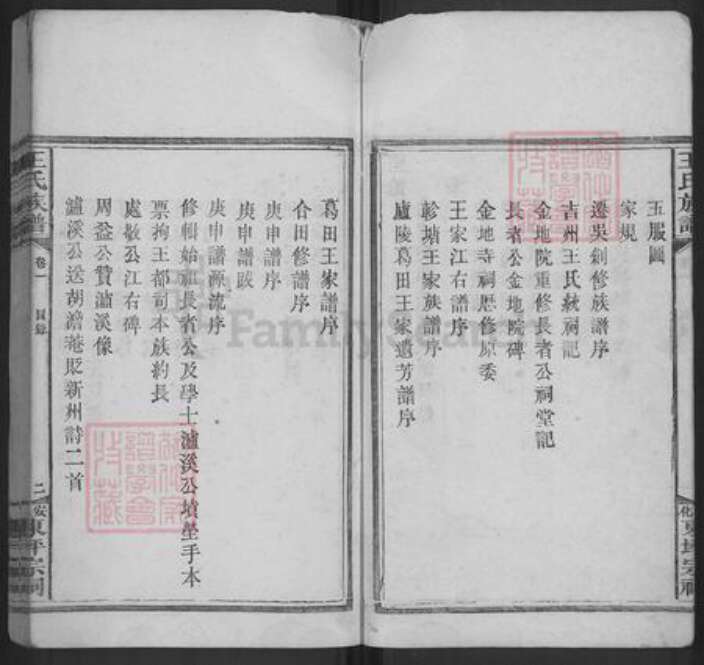 王氏族譜
五服圖
家規
遷吳創修族譜序
吉州王氏秋祠記
金地院重修長者公祠堂記
長者公金地院碑
金地寺祠歷修原委
王家江右譜序
軫塘王家族譜序
廬陵葛田王家遺芳譜序
化東坪宗祠
葛田王家譜序
仓田修譜序
庚申譜序
庚申譜跋
庚申譜源流序
修輯始祖長者公及學士瀘溪公墳塋手本
票拘王都司本族約長
處敬公江右碑
周益公贊瀘溪像
瀘溪公送胡澹菴貶新州詩二首
王氏族譜
卷一
目錄
二
安
東坪宗祠
FamilySearch